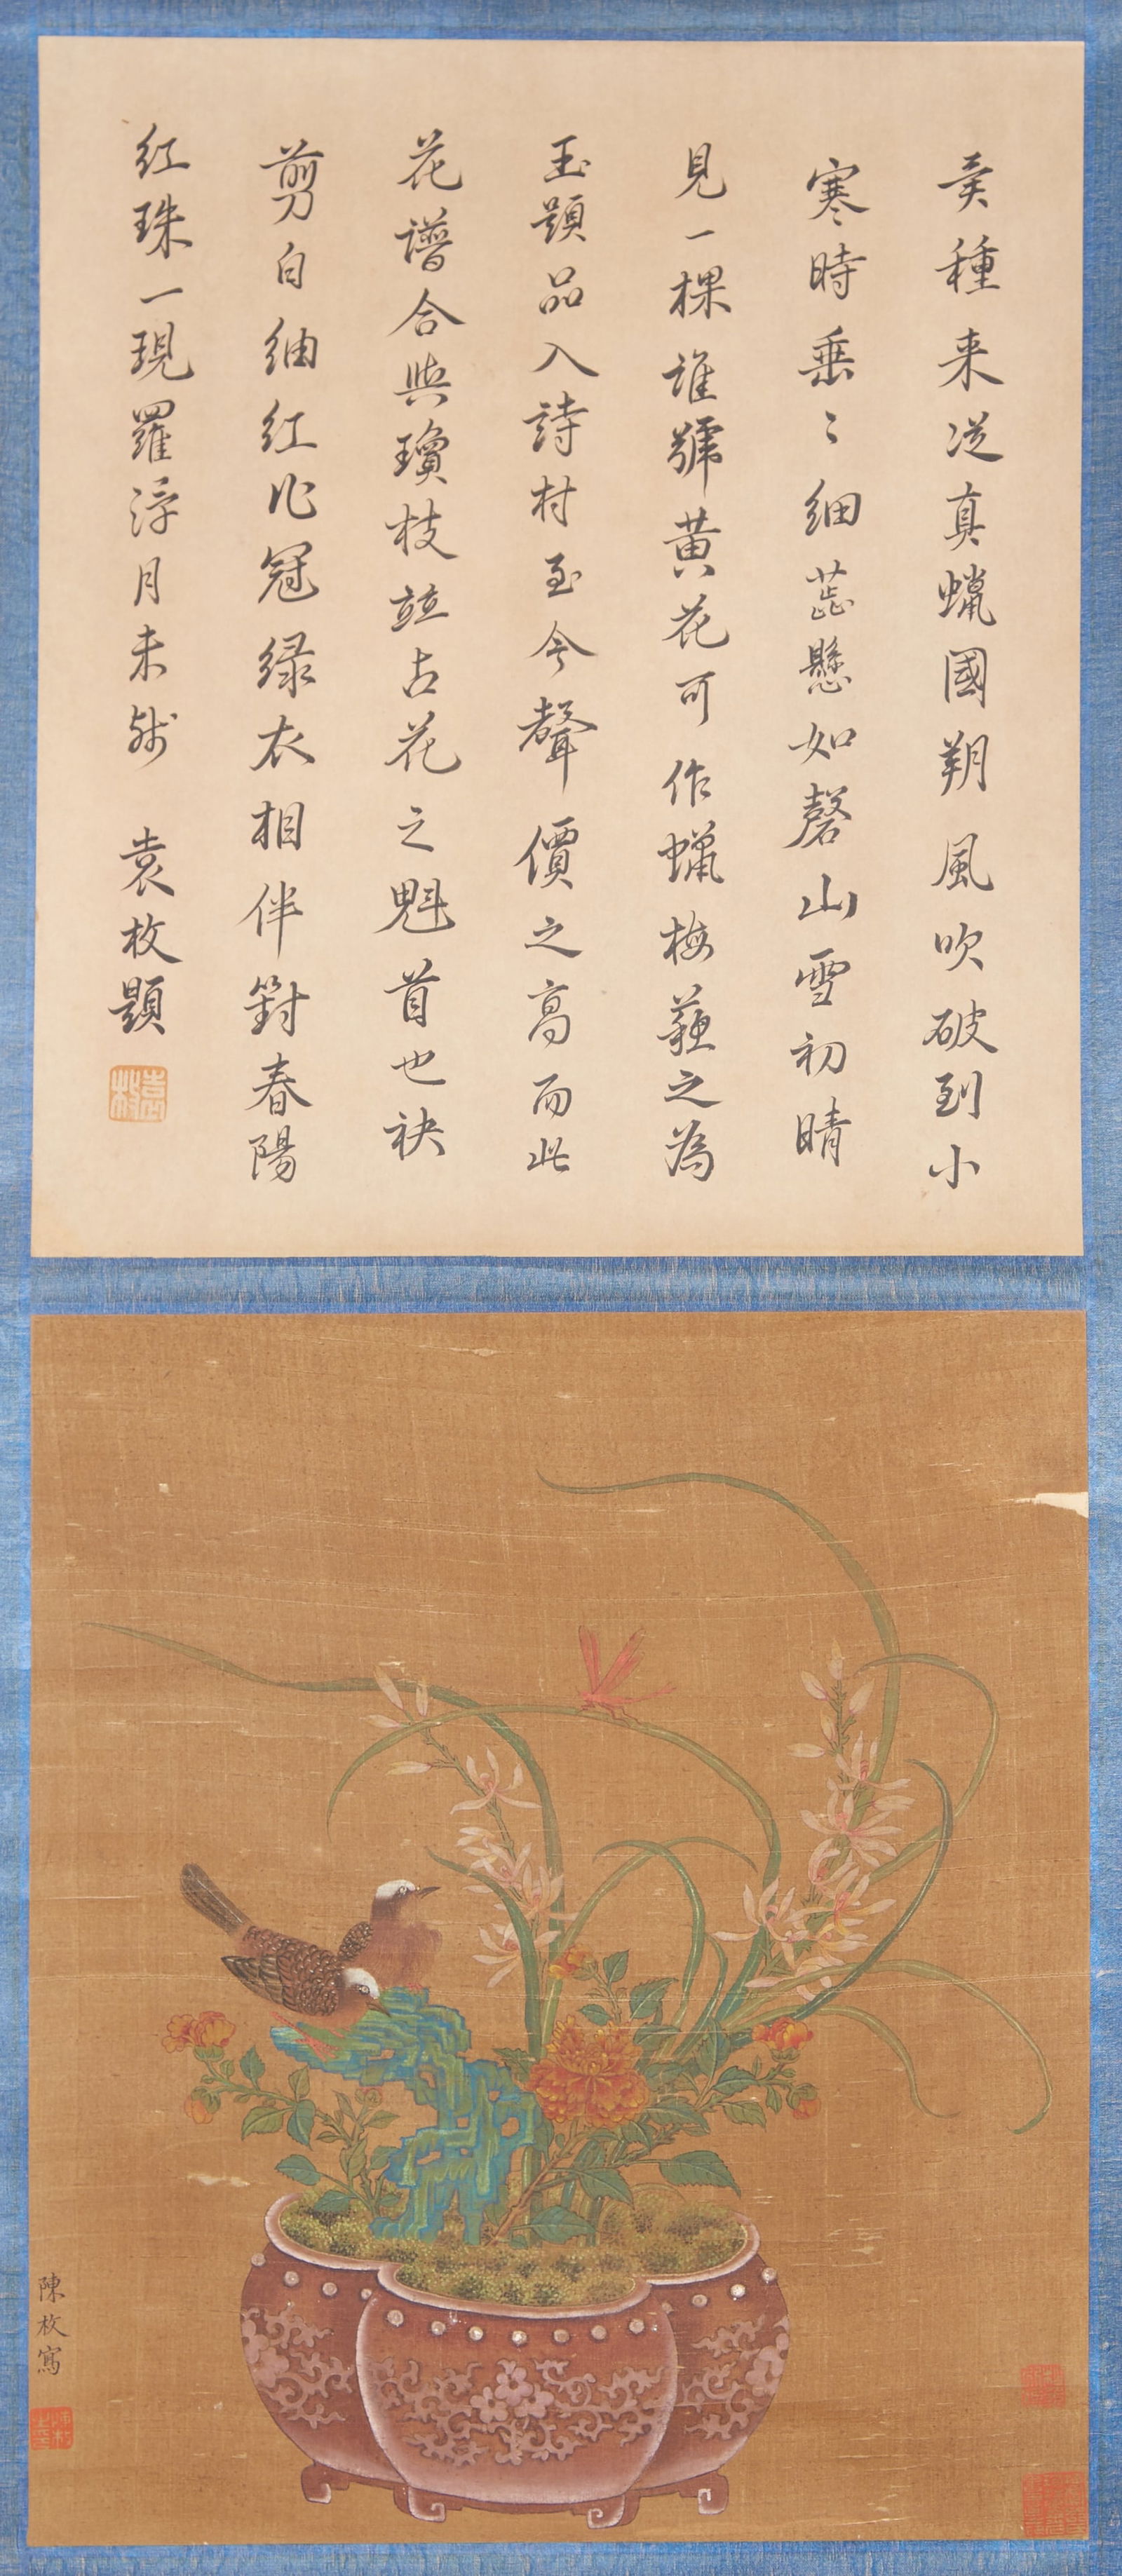 異種来從真蠟國朔風吹破到小
寒時垂〻細蕋懸如磬山雪初晴
見一棵誰號黄花可作蠟梅蘓之為
玉題品入詩村至今聲價之高而此
花譜合與瓊枝並占花之魁首也袂
剪白紬紅作冠緑衣相伴對春陽
紅珠一現羅浮月未殘 袁枚題
袁枚
陳枚寫